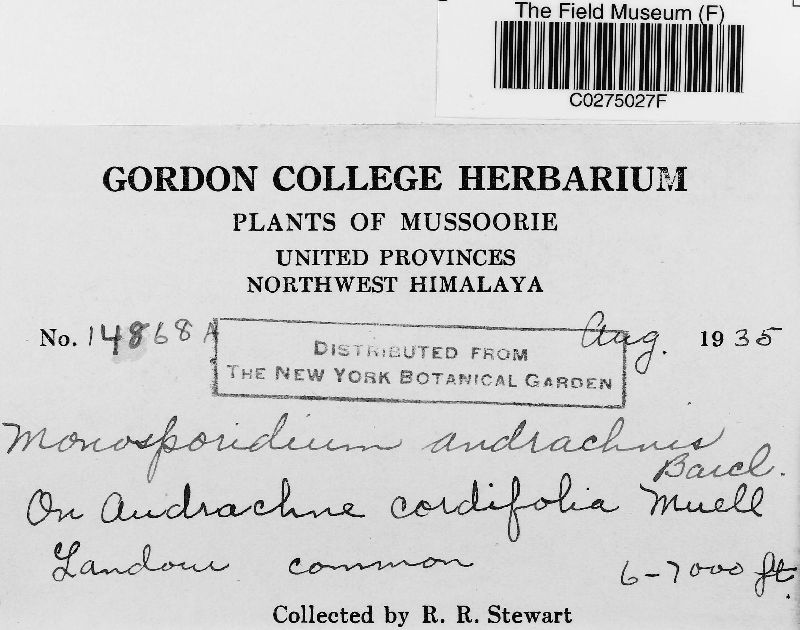 The Field Museum (F)
C0275027F
GORDON COLLEGE HERBARIUM
PLANTS OF MUSSOORIE
UNITED PROVINCES
NORTHWEST HIMALAYA
No. 14868 A Aug. 1935
DISTRIBUTED FROM
THE NEW YORK BOTANICAL GARDEN
Monosporidium andrachnis
Barcl.
On Andrachne cordifolia Muell
Landour common 6-7000 ft.
Collected by R. R. Stewart